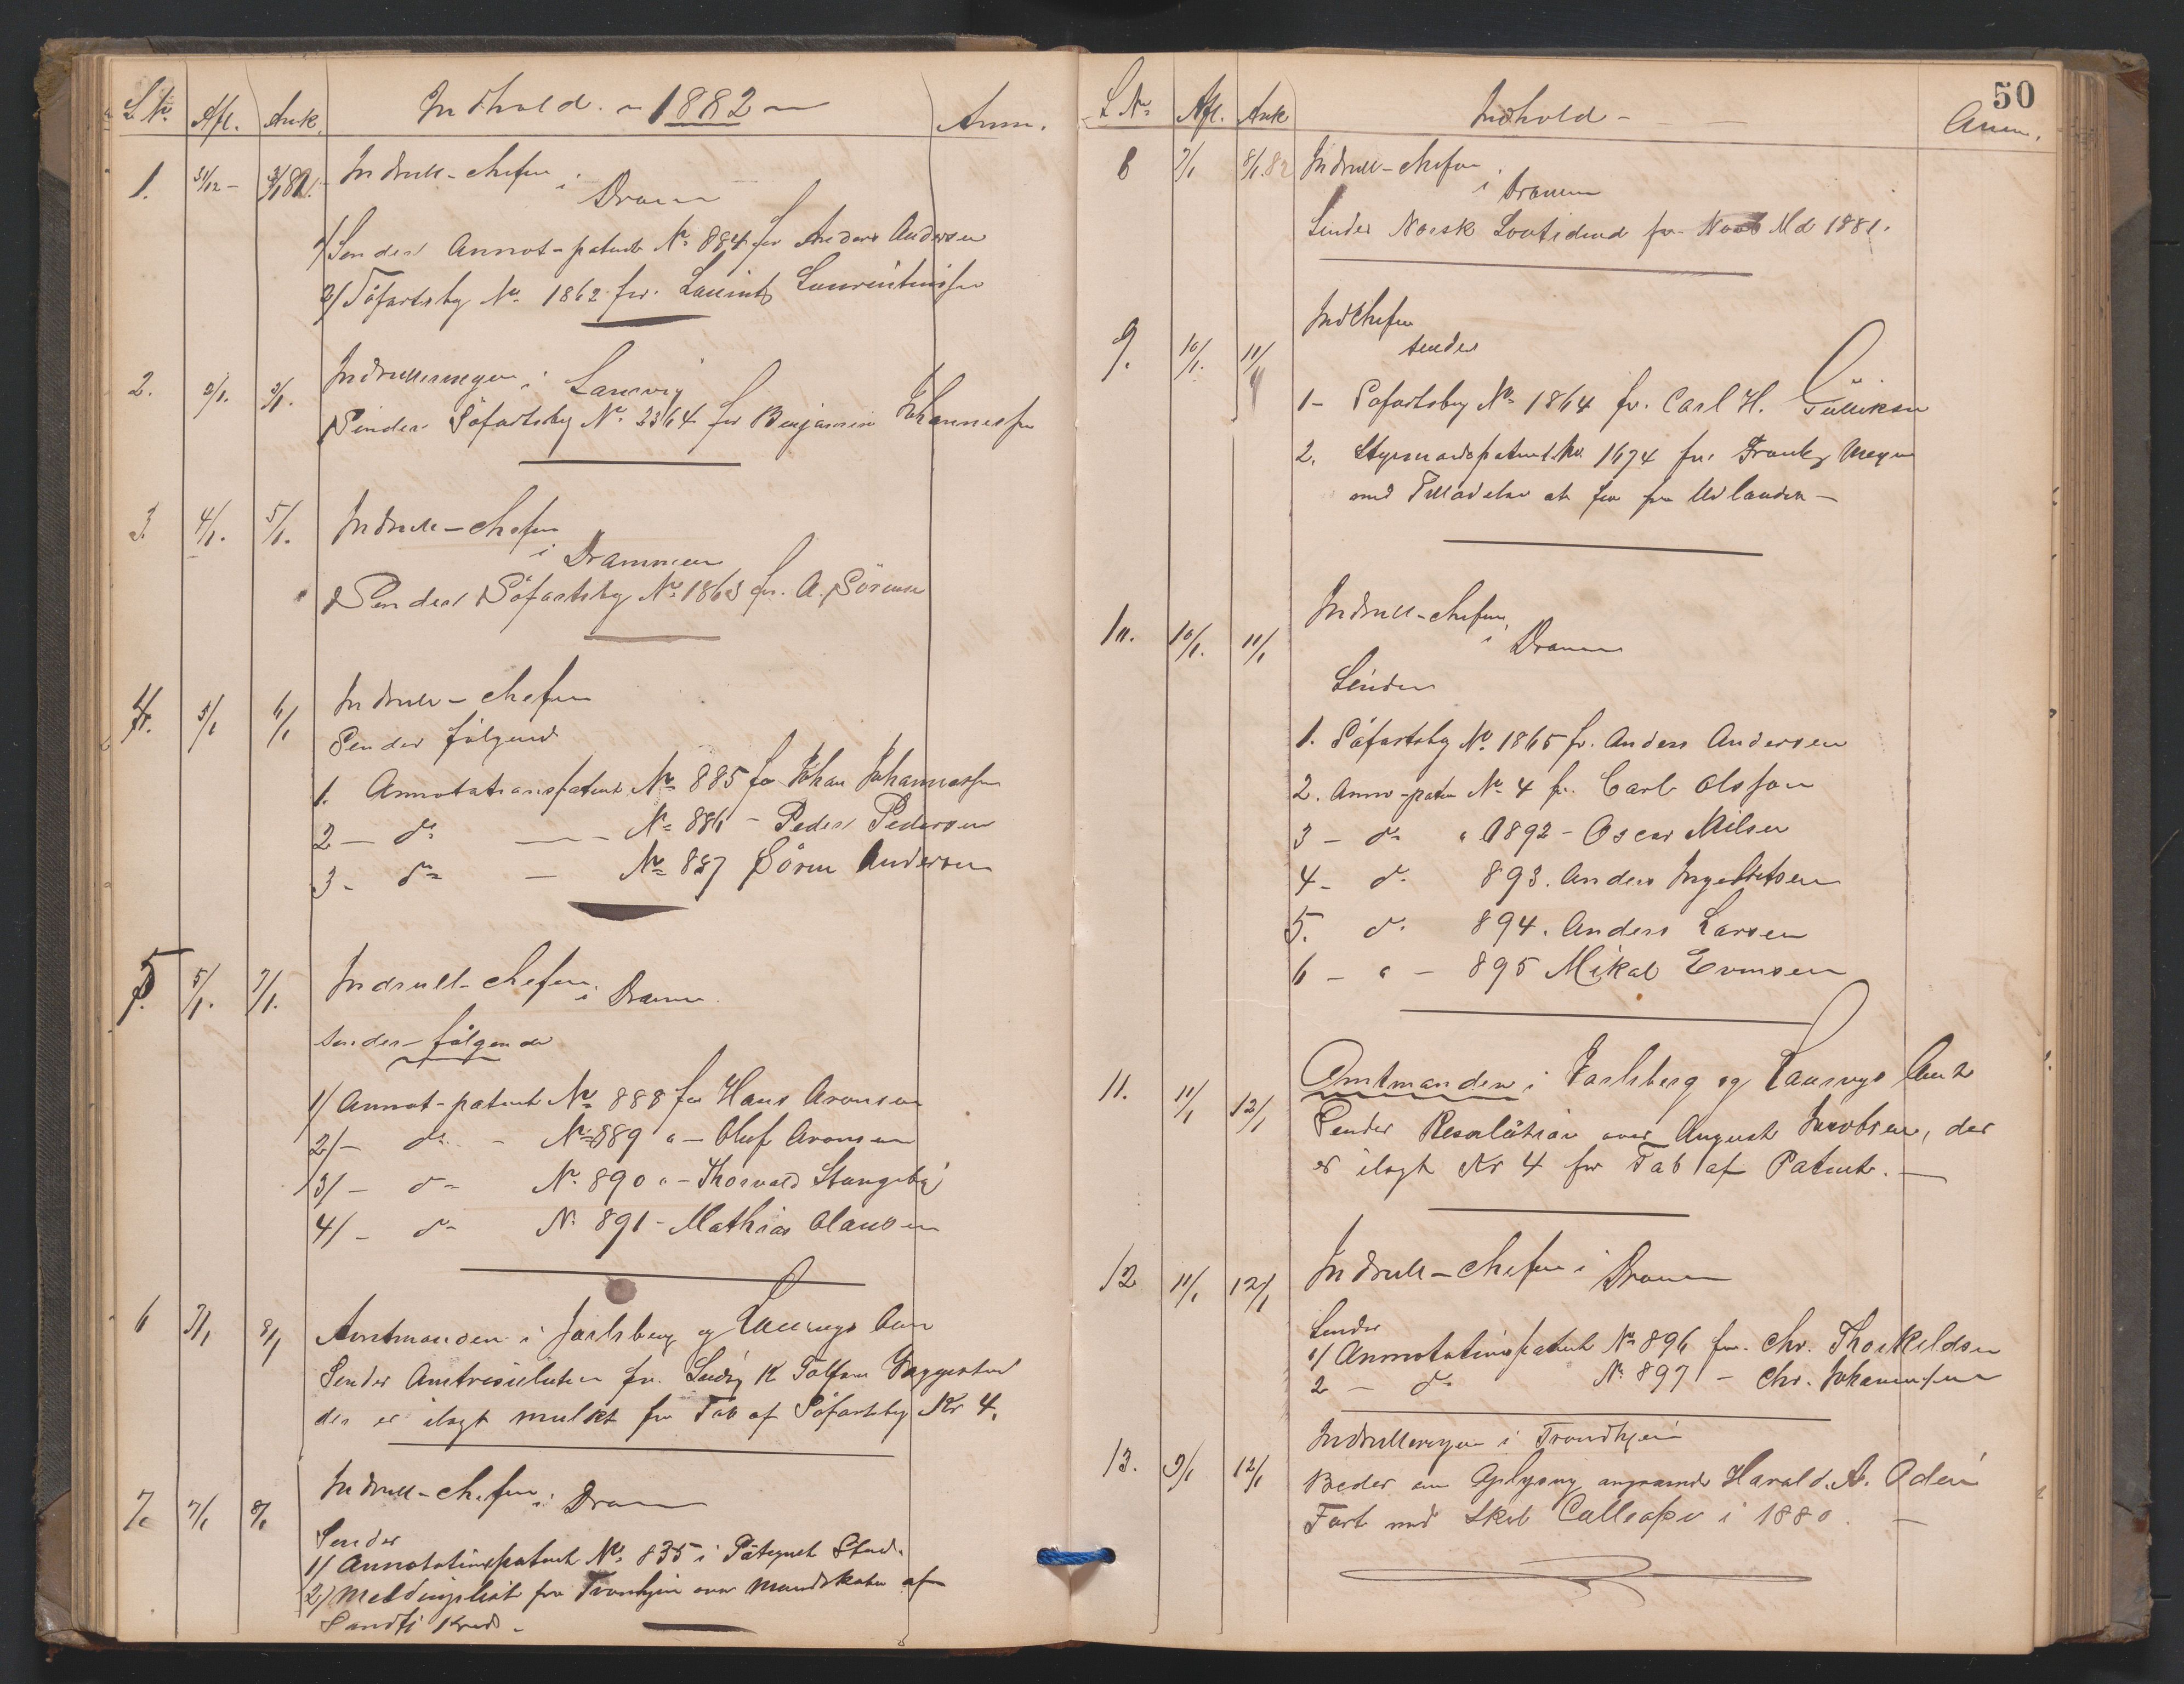 L No. Afl. Ank. Indhold - 1882 - Anm.
1. 31/12 - 3/1 82. Indrull-chefen
i Dramm
1/ Sender Annot-patent No 884 for Anders Andersen
2/ Söfartsbg No 1862 for Laurits Laurintiussen
2. 2/1. 3/1. Indrulleringen i Laurvig
Sender Söfartsbog No 2364 for Benjamin Johannessen
3. 4/1. 5/1. Indrull-chefen
i Drammen
Sender Söfartsbg No 1863 for A. Sörensen
4. 5/1 6/1 Indrull-chefen
Sender følgend
1. Annotationspatent No 885 for Johan Johannessen
2 - do - No 886 - Peder Pedersen
3 - do - No 887 Sören Andersen
5. 5/1. 7/1. Indrull-chefen
i Dramm.
sender følgende
1/ Annot-patent No 888 for Hans Aronsen
2/ - do - No 889 " - Oluf Aronsen
3/ - do No 890 " - Thorvald Stangebÿ
4/ - do No 891 - Mathias Clausen
6 7/1 8/1 Amtmanden i Jarlsberg og Laurvigs Amt
Sender Amtresolution for Ludvig K
der er ilagt mulkt for Tab af Söfartsbg Kr 4.
7. 7/1 8/1 Indrull-chefen i Dramm
Sender
1/ Annotationspatent No 835 i Påtegnet Stand.
2/ Meldingslist fra Tronhjem over Mandskaber af
Sandfj Kreds -
50
L No Afl. Ank Indhold - Anm.
8 7/1 8/1. 82 Indrull-chefen
i Drammen
Sender Norsk Lovtidend for Novb Md 1881.
9. 10/1. 11/1 Indchefen
sender
1 - Söfartsbog No 1864 for Carl H. Tölliksen
2. Styrmandspatent No 1674 for Frantz Meyer
med Tilladelse at fare fra Udlandet -
10. 10/1. 11/1 Indrull-chefen
i Dramm
Sender
1. Söfartsbg No 1865 for Anders Andersen
2. Anno-paten No 4 for Carl Olsson
3 - do " 892 - Oscar Nilsen
4 - do 893. Anders Ingebretsen
5. do 894. Anders Larsen
6 - " - 895 Mikal Evensen
11. 11/1 12/1 Amtmanden i Jarlsberg og Laurvigs Amt
Sender Resolution over August Jacobsen, der
er ilagt Kr 4 for Tab af Patent. -
12 11/1 12/1 Indrull-chefen i Dramm
Sender
1/ Annotationspatent No 896 for Chr. Thorkildsen
2 - do No 897 - Chr. Johannessen
13. 9/1 12/1 Indrulleringen i Trondhjem
Beder om Oplysning angaaende Harald. A. Odens
Fart med Skib Calleope i 1880. -